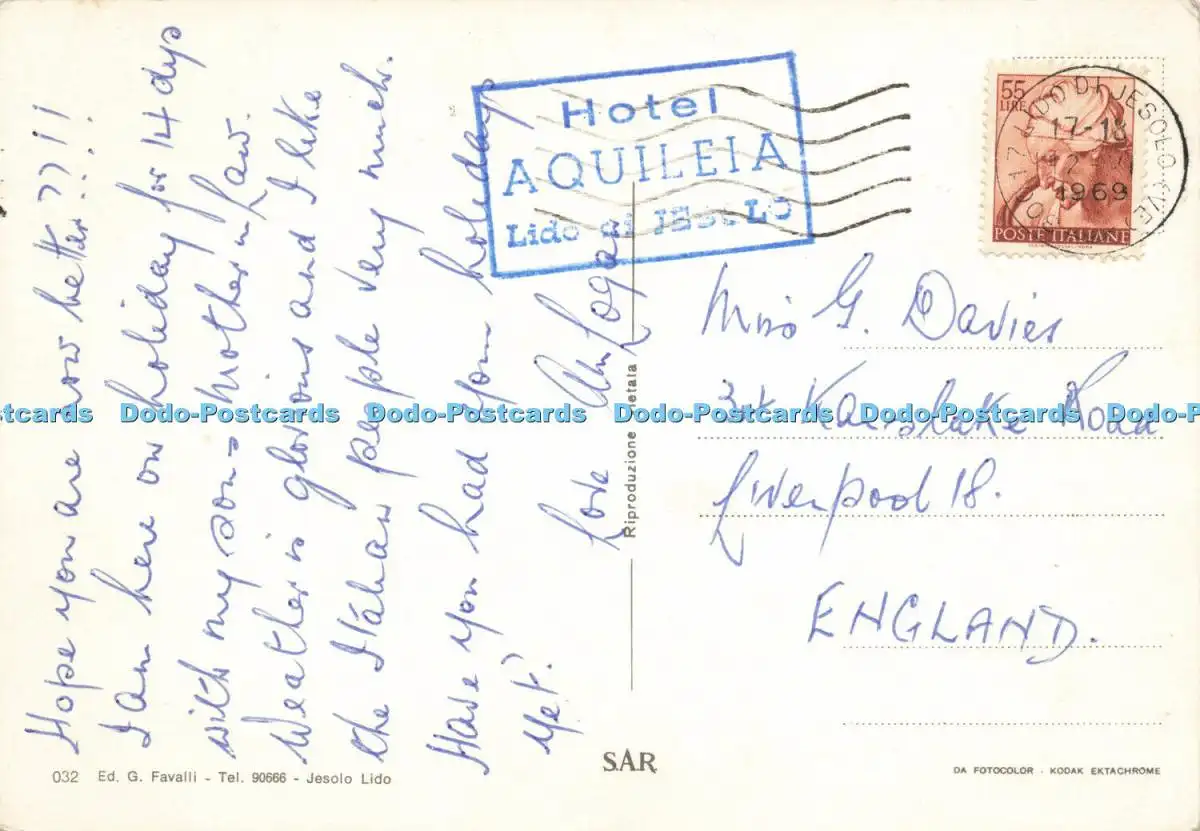 Hope you are now better??!!
I am here on holiday for 14 dys
with my son & Mother in Law.
Weather is glorious and I like
the Italian people very much.
Have you had your holidays
yet?
Love Logan
Hotel
AQUILEIA
Lido di JESOLO
55
LIRE
POSTE ITALIANE
LIDO DI JESOLO (VE)
17-18
1969
Miss G. Davies
Karslake Road
Liverpool 18.
ENGLAND.
Riproduzione vietata
Dodo-Postcards Dodo-Postcards Dodo-Postcards Dodo-Postcards
032 Ed. G. Favalli - Tel. 90666 - Jesolo Lido
SAR
DA FOTOCOLOR - KODAK EKTACHROME